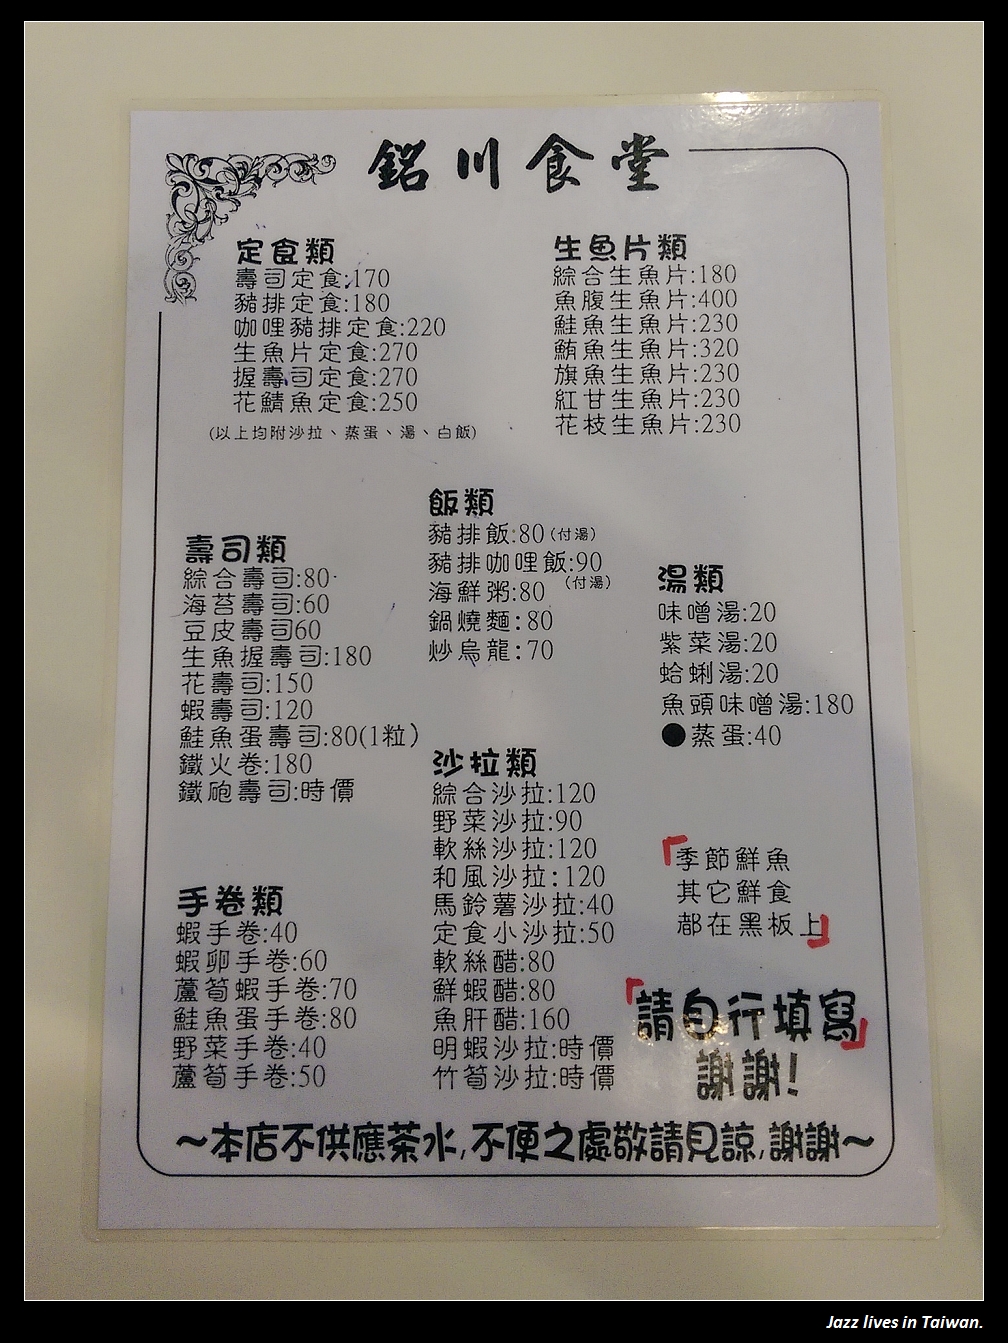 銘川食堂
定食類
壽司定食:170
豬排定食:180
咖哩豬排定食:220
生魚片定食:270
握壽司定食:270
花鯖魚定食:250
(以上均附沙拉、蒸蛋、湯、白飯)
生魚片類
綜合生魚片:180
魚腹生魚片:400
鮭魚生魚片:230
鮪魚生魚片:320
旗魚生魚片:230
紅甘生魚片:230
花枝生魚片:230
飯類
豬排飯:80(付湯)
豬排咖哩飯:90
(付湯)
海鮮粥:80
鍋燒麵:80
炒烏龍:70
壽司類
綜合壽司:80
海苔壽司:60
豆皮壽司60
生魚握壽司:180
花壽司:150
蝦壽司:120
鮭魚蛋壽司:80(1粒)
鐵火卷:180
鐵砲壽司:時價
湯類
味噌湯:20
紫菜湯:20
蛤蜊湯:20
魚頭味噌湯:180
●蒸蛋:40
沙拉類
綜合沙拉:120
野菜沙拉:90
軟絲沙拉:120
和風沙拉:120
馬鈴薯沙拉:40
定食小沙拉:50
軟絲醋:80
鮮蝦醋:80
魚肝醋:160
明蝦沙拉:時價
竹筍沙拉:時價
手卷類
蝦手卷:40
蝦卵手卷:60
蘆筍蝦手卷:70
鮭魚蛋手卷:80
野菜手卷:40
蘆筍手卷:50
「季節鮮魚
其它鮮食
都在黑板上」
「請自行填寫」
謝謝!
~本店不供應茶水,不便之處敬請見諒,謝謝~
Jazz lives in Taiwan.